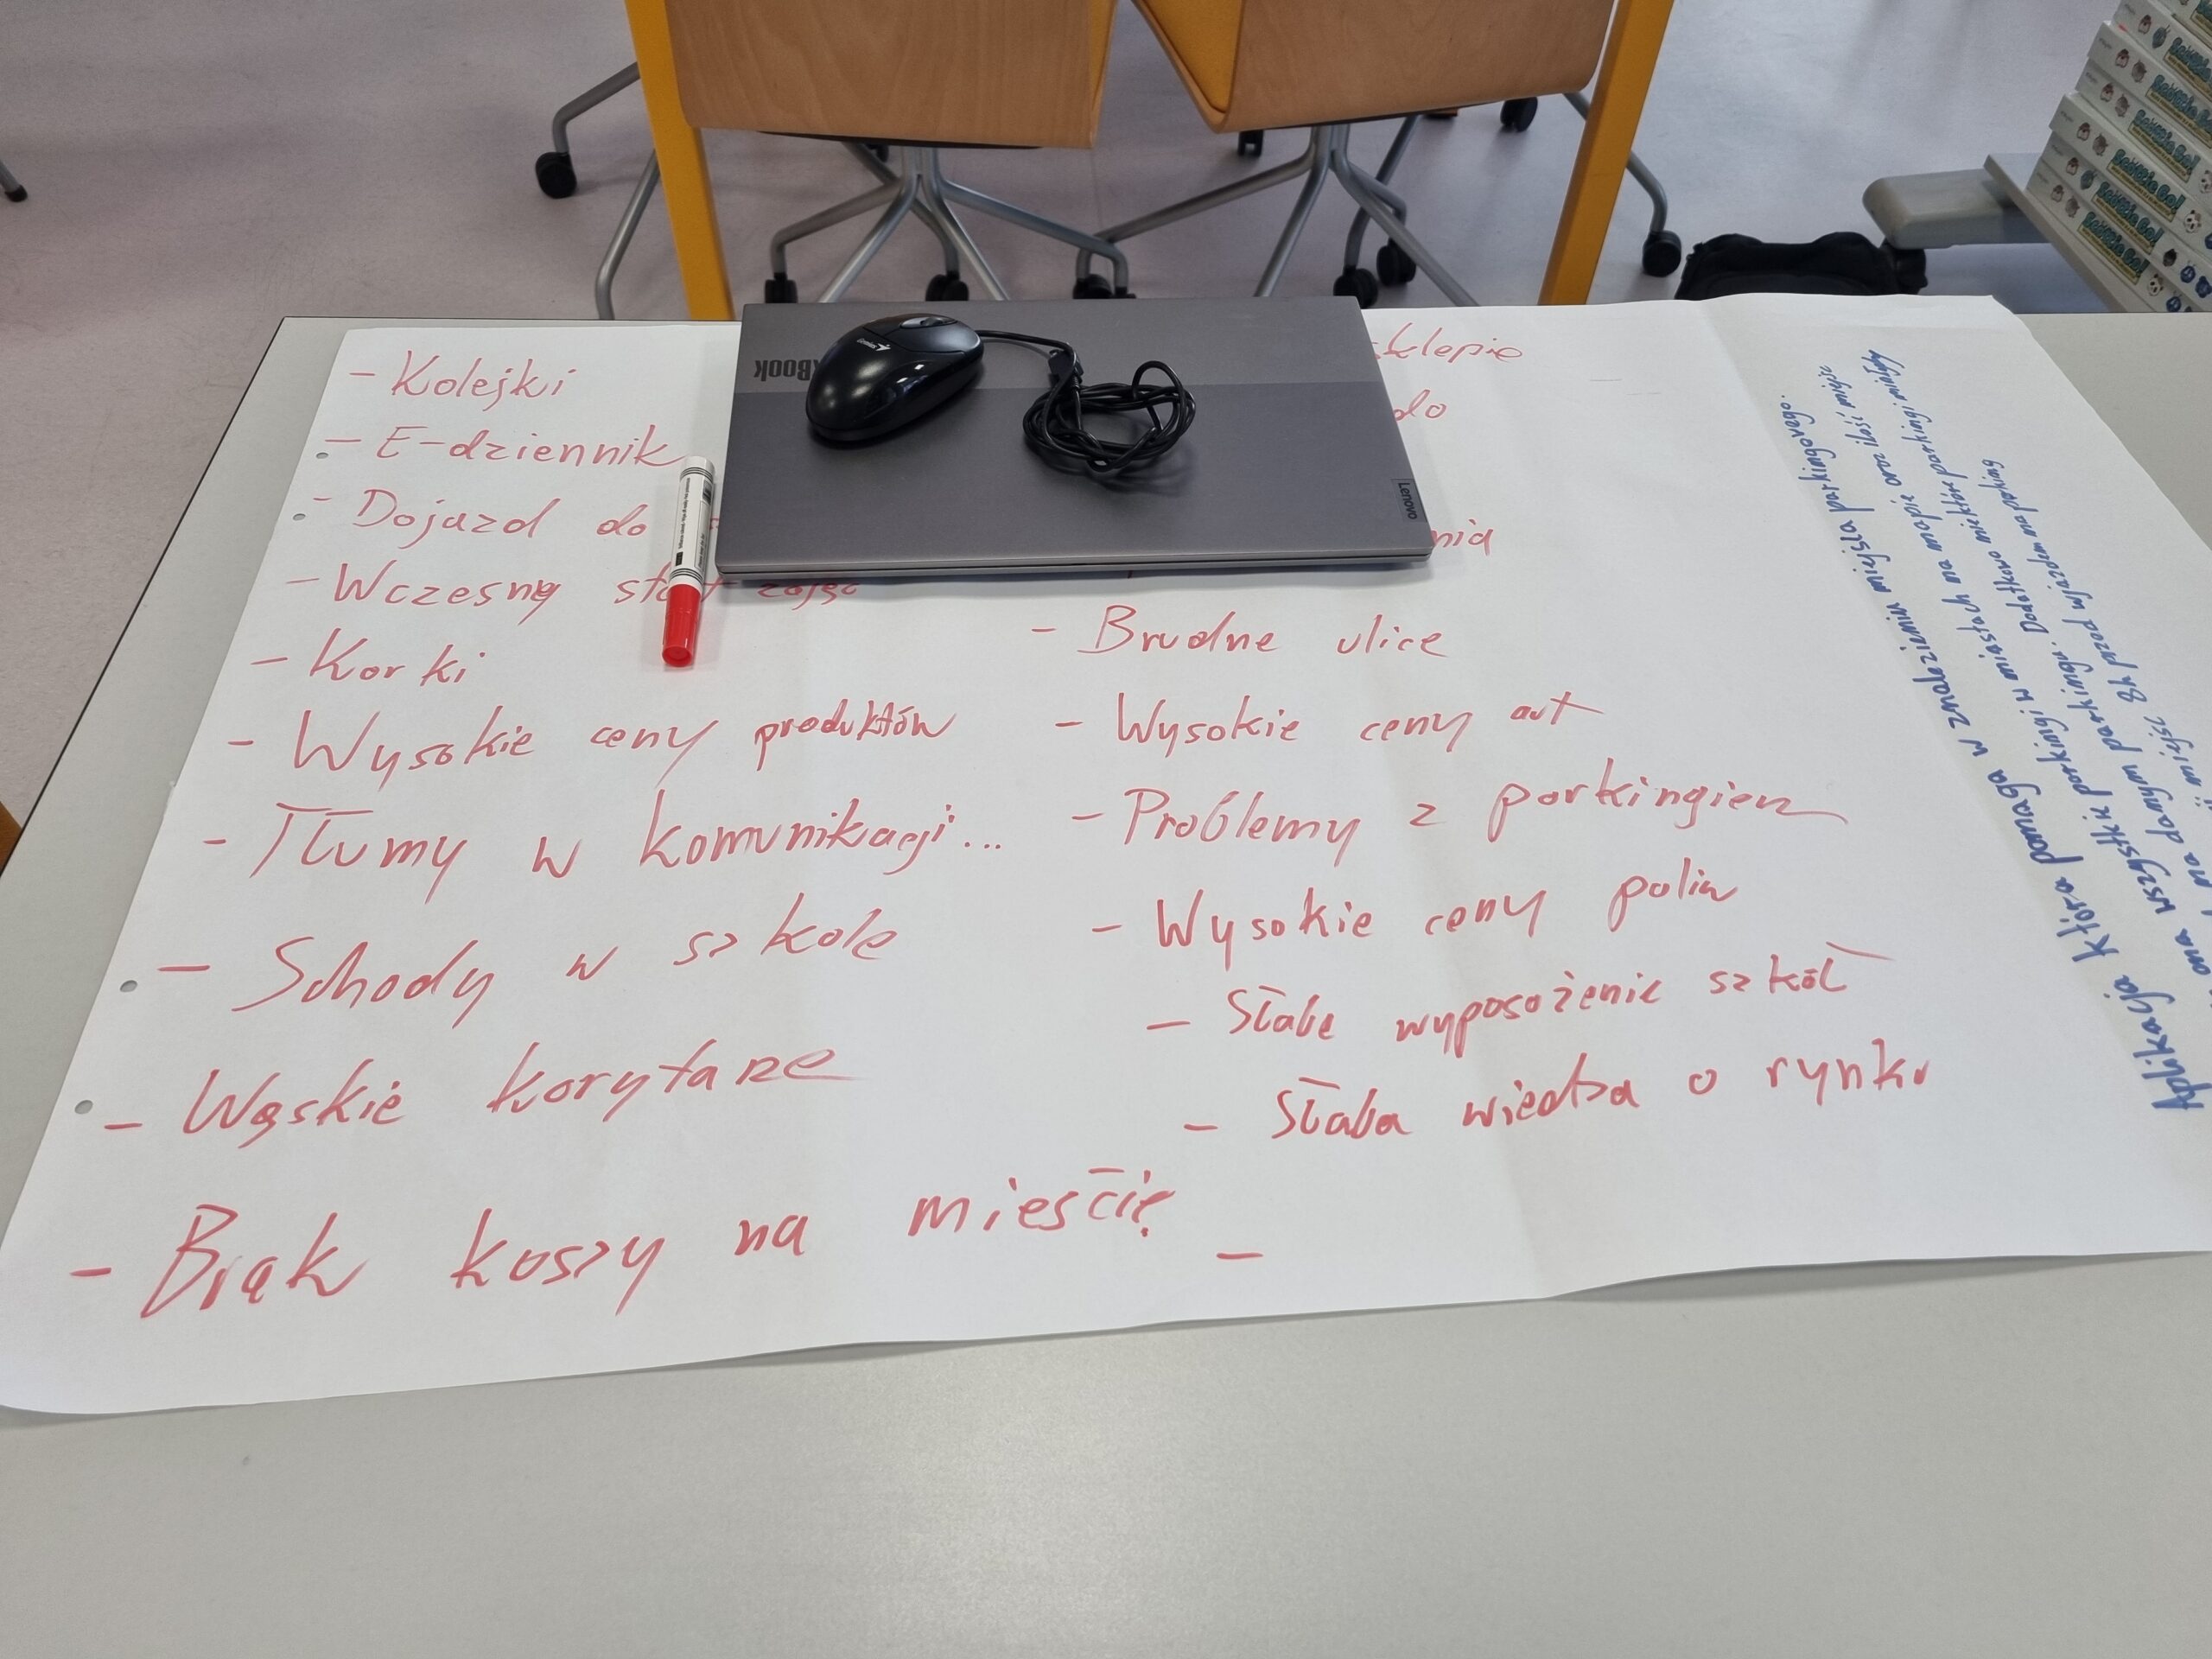 - Kolejki
- E-dziennik
- Dojazd do
- Wczesny start zajęć
- Korki
- Wysokie ceny produktów
- Tłumy w komunikacji...
- Schody w szkole
- Wąskie korytarze
- Brak koszy na mieście
sklepie
do
nia
- Brudne ulice
- Wysokie ceny aut
- Problemy z parkingiem
- Wysokie ceny paliw
- Słabe wyposożenie szkół
- Słaba wiedza o rynku
-
Aplikacja która pomaga w znalezieniu miejsca parkingowego.
ona wszystkie parkingi w miastach na mapie oraz ilość miejsc
na danym parkingu. Dodatkowo niektóre parkingi miałyby
ji miejsc 8h przed wjazdem na parking
Book
Lenovo
Genius